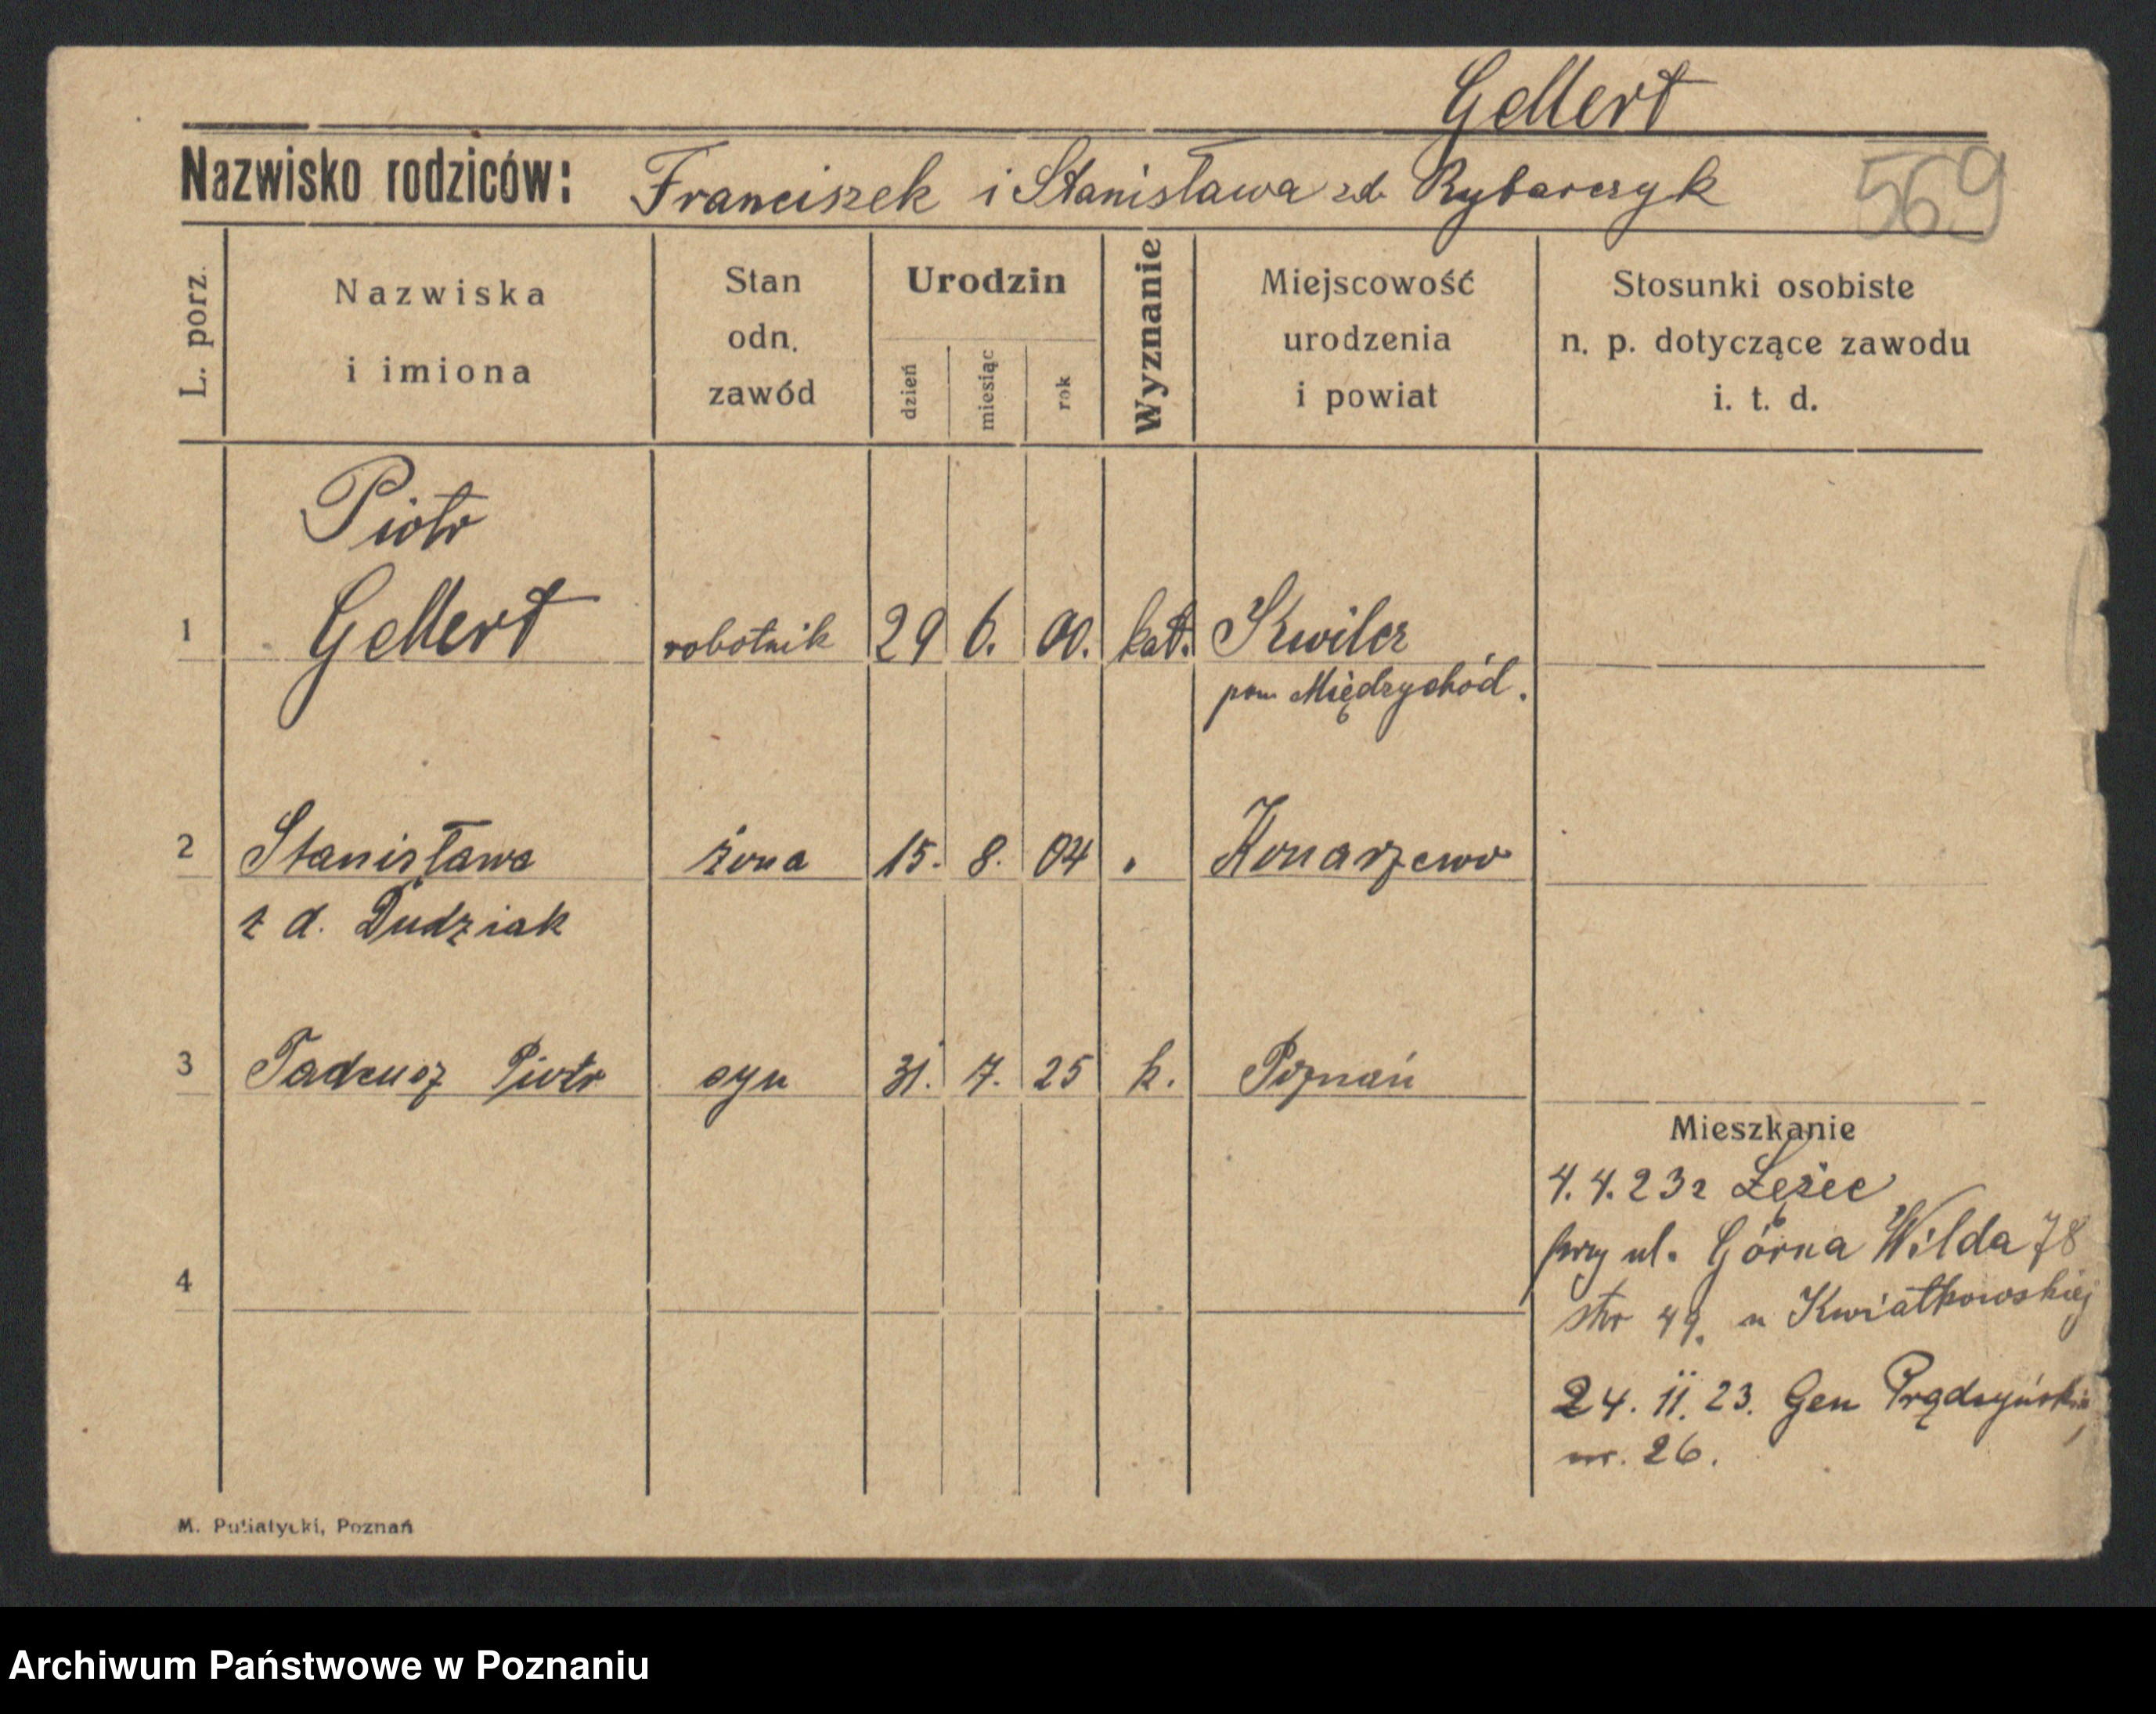 Gellert
Nazwisko rodziców: Franciszek i Stanisława zd. Rybarczyk
569
L. porz.
Nazwiska
i imiona
Stan
odn.
zawód
Urodzin
dzień
miesiąc
rok
Wyznanie
Miejscowość
urodzenia
i powiat
Stosunki osobiste
n. p. dotyczące zawodu
i. t. d.
Piotr
1 Gellert robotnik 29 6. 00. kat. Kwilcz
pow Międzychód.
2 Stanisława żona 15. 8. 04 Konarzewo
z d. Dudziak
3 Tadeusz Piotr syn 31. 7. 25 k. Poznań
Mieszkanie
4.4.23 z Łężec
przy ul. Górna Wilda 78
4
49. u Kwiatkowskiej
24. 11. 23. Gen Prądzyńskie
nr. 26.
M. Putiatycki, Poznań
Archiwum Państwowe w Poznaniu